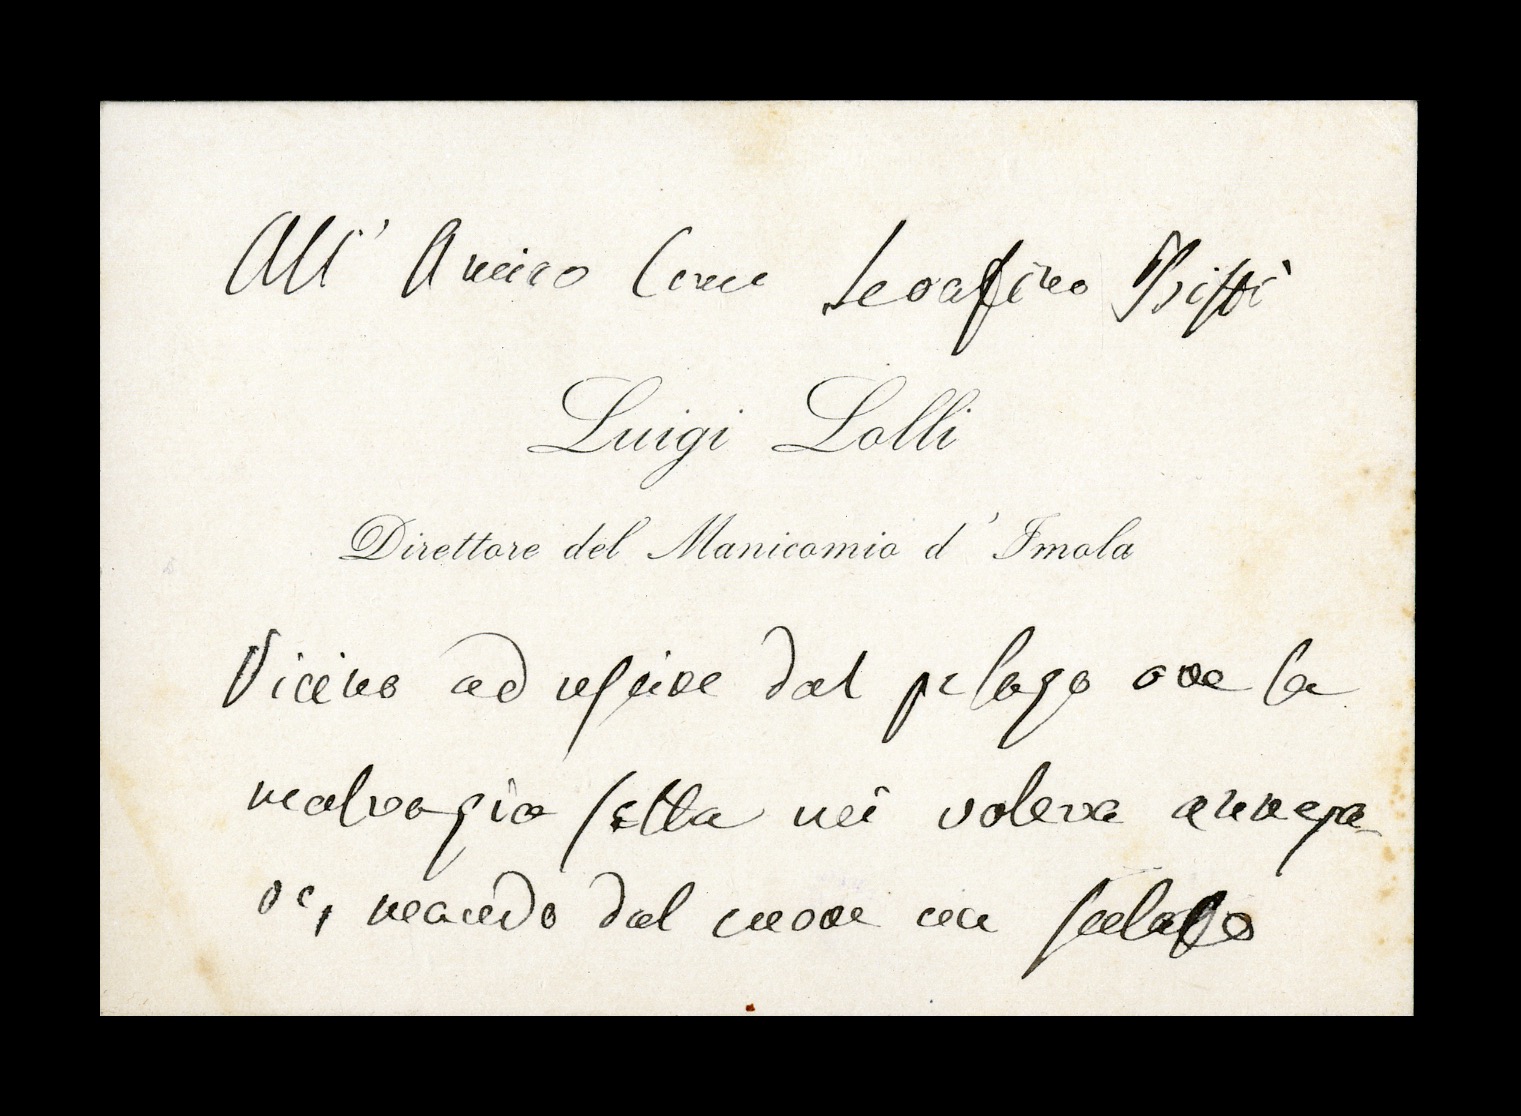 All' Amico Comm Serafino Biffi
Luigi Lolli
Direttore del Manicomio d' Imola
Vicino ad uscire dal pelago ove la
malvagia setta mi voleva annega-
re, mando dal cuore un saluto